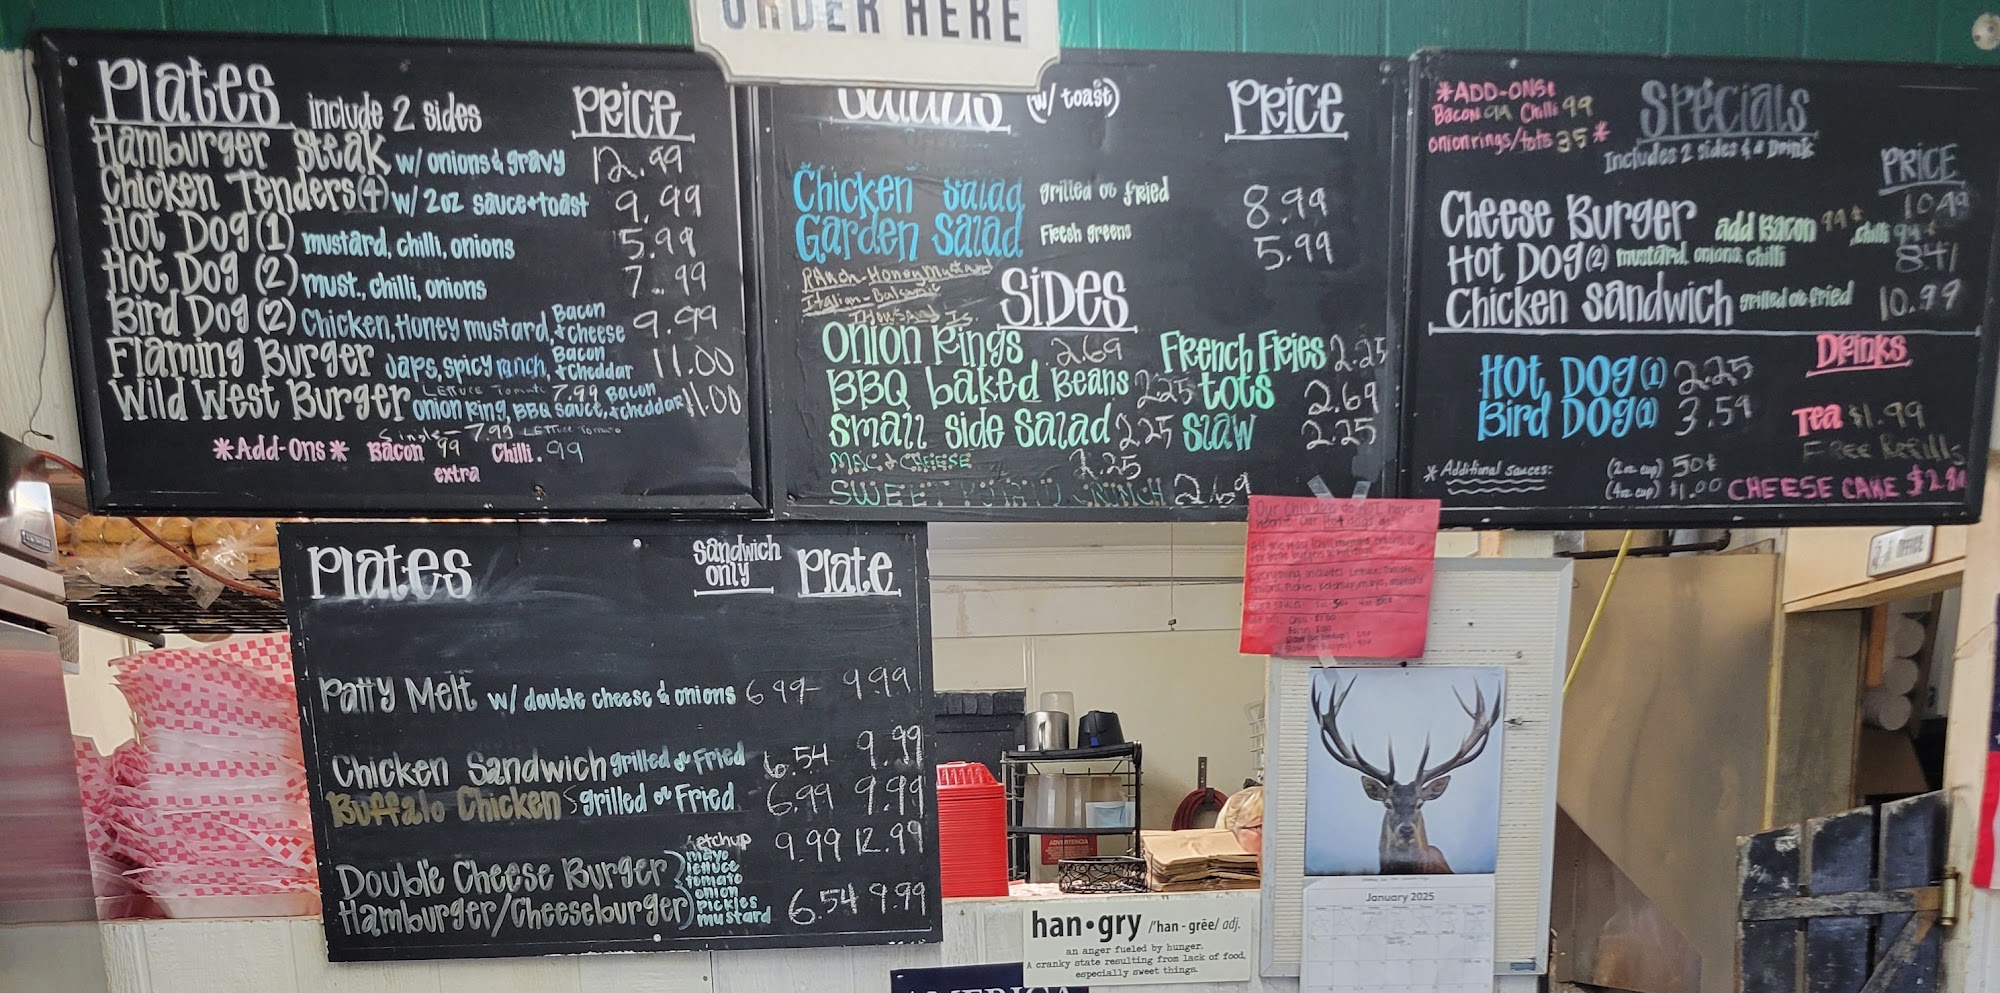 ORDER HERE
Plates include 2 sides PRICE
Hamburger Steak w/ onions & gravy 12.99
Chicken Tenders (4) w/ 2oz sauce + toast 9.99
Hot Dog (1) mustard, chilli, onions 5.99
Hot Dog (2) must., chilli, onions 7.99
Bird Dog (2) Chicken, Honey mustard, Bacon + cheese 9.99
Flaming Burger Japs, spicy ranch, Bacon + cheddar 11.00
Wild West Burger Lettuce Tomato 7.99 Bacon
onion ring, BBQ sauce, + cheddar 11.00
Single - 7.99 Lettuce Tomato
*Add-Ons* Bacon 99 Chilli .99
extra
Salads (w/ toast) PRICE
Chicken Salad grilled or fried 8.99
Garden Salad Fresh greens 5.99
Ranch - Honey Mustard
Italian - Balsamic
Thousand Is.
SIDES
Onion Rings 2.69 French Fries 2.25
BBQ baked Beans 2.25 tots 2.69
Small side Salad 2.25 Slaw 2.25
MAC & CHEESE 2.25
SWEET POTATO CRUNCH 2.69
*ADD-ONS:
Bacon 99 Chilli 99
onion rings/tots 35*
Specials
Includes 2 Sides & a Drink
PRICE
Cheese Burger add Bacon 99¢, chilli 99¢ 10.99
Hot Dog (2) mustard, onions, chilli 8.41
Chicken Sandwich grilled or fried 10.99
Hot Dog (1) 2.25
Bird Dog (1) 3.59
Drinks
Tea $1.99
Free Refills
*Additional sauces: (2oz cup) 50¢
(4oz cup) $1.00
CHEESE CAKE
Plates Sandwich only Plate
Patty Melt w/ double cheese & onions 6.99 9.99
Chicken Sandwich grilled or Fried 6.54 9.99
Buffalo Chicken grilled or Fried 6.99 9.99
Double Cheese Burger 9.99 12.99
Hamburger/Cheeseburger 6.54 9.99
ketchup
mayo
lettuce
tomato
onion
pickles
mustard
OFFICE
ADVERTENCIA
January 2025
han•gry /'han - grēe/ adj.
an anger fueled by hunger.
A cranky state resulting from lack of food,
especially sweet things.
AMERICA